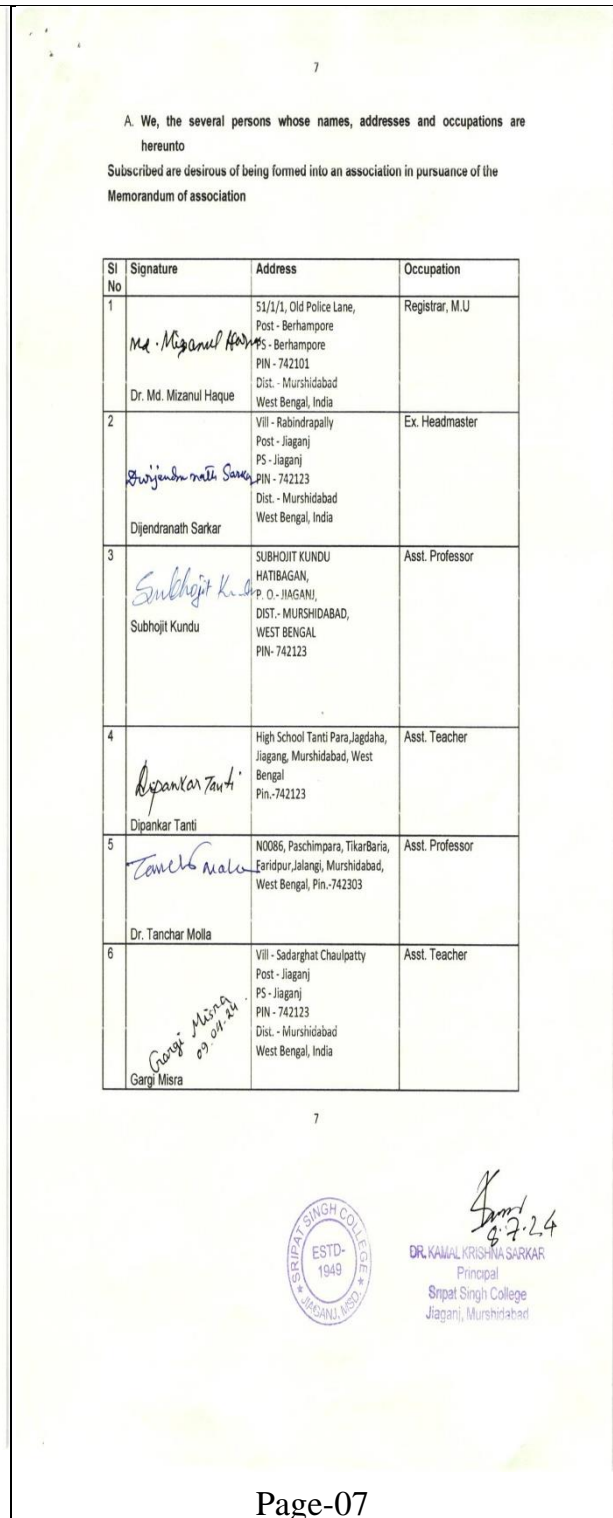 7
A. We, the several persons whose names, addresses and occupations are
hereunto
Subscribed are desirous of being formed into an association in pursuance of the
Memorandum of association
Sl No Signature Address Occupation
1
Md. Mizanul Haque
Dr. Md. Mizanul Haque
51/1/1, Old Police Lane,
Post - Berhampore
PS - Berhampore
PIN - 742101
Dist. - Murshidabad
West Bengal, India
Registrar, M.U
2
Dwijendra nath Sarkar
Dijendranath Sarkar
Vill - Rabindrapally
Post - Jiaganj
PS - Jiaganj
PIN - 742123
Dist. - Murshidabad
West Bengal, India
Ex. Headmaster
3
Subhojit Kundu
Subhojit Kundu
SUBHOJIT KUNDU
HATIBAGAN,
P. O.- JIAGANJ,
DIST.- MURSHIDABAD,
WEST BENGAL
PIN- 742123
Asst. Professor
4
Dipankar Tanti
Dipankar Tanti
High School Tanti Para,Jagdaha,
Jiagang, Murshidabad, West
Bengal
Pin.-742123
Asst. Teacher
5
Dr. Tanchar Molla
N0086, Paschimpara, TikarBaria,
Faridpur,Jalangi, Murshidabad,
West Bengal, Pin.-742303
Asst. Professor
6
Gargi Misra
09.04.24
Gargi Misra
Vill - Sadarghat Chaulpatty
Post - Jiaganj
PS - Jiaganj
PIN - 742123
Dist. - Murshidabad
West Bengal, India
Asst. Teacher
7
SRIPAT SINGH COLLEGE
ESTD-
1949
JIAGANJ, MSD.
8.7.24
DR. KAMAL KRISHNA SARKAR
Principal
Sripat Singh College
Jiaganj, Murshidabad
Page-07